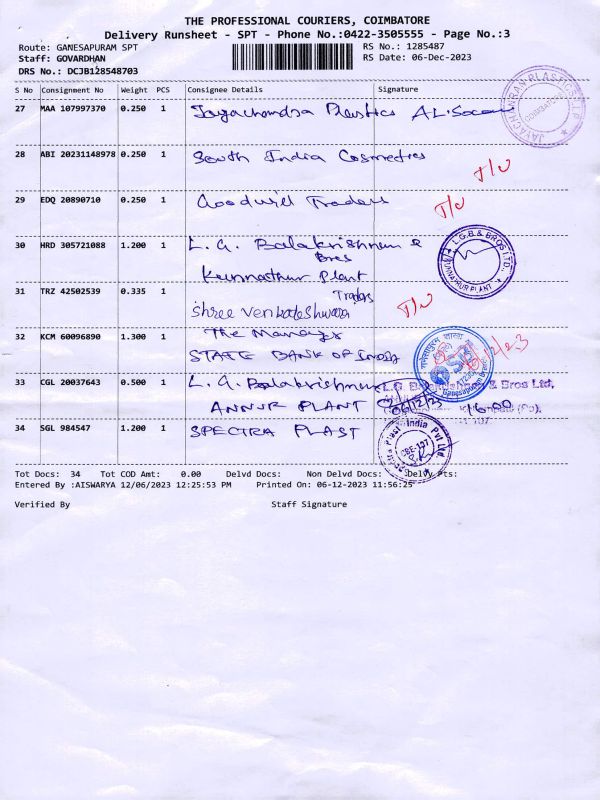 THE PROFESSIONAL COURIERS, COIMBATORE
Delivery Runsheet - SPT - Phone No.:0422-3505555 - Page No.:3
Route: GANESAPURAM SPT
RS No.: 1285487
Staff: GOVARDHAN
RS Date: 06-Dec-2023
DRS No.: DCJB128548703
S No Consignment No Weight PCS Consignee Details Signature
27 MAA 107997370 0.250 1 Jayachandra Plastics
JAYACHANDRAN PLASTICS
COIMBATORE
28 ABI 20231148978 0.250 1 South India Cosmetics
29 EDQ 20890710 0.250 1 Goodwill Traders
30 HRD 305721088 1.200 1 L.G. Balakrishnan &
Bros
Kunnathur Plant
L.G.B & BROS LTD.,
31 TRZ 42502539 0.335 1 Traders
Shree Venkateshwara
32 KCM 60096890 1.300 1 The Manager
STATE BANK OF India
SBI
Ganesapuram Branch
33 CGL 20037643 0.500 1 L.G. Balakrishnan
ANNUR PLANT
& Bros Ltd,
06/12/23 16.00
34 SGL 984547 1.200 1 SPECTRA PLAST
Spectra Plast India Pvt Ltd.
CBE-107
Tot Docs: 34 Tot COD Amt: 0.00 Delvd Docs: Non Delvd Docs: Delvy Pts:
Entered By :AISWARYA 12/06/2023 12:25:53 PM Printed On: 06-12-2023 11:56:25
Verified By Staff Signature